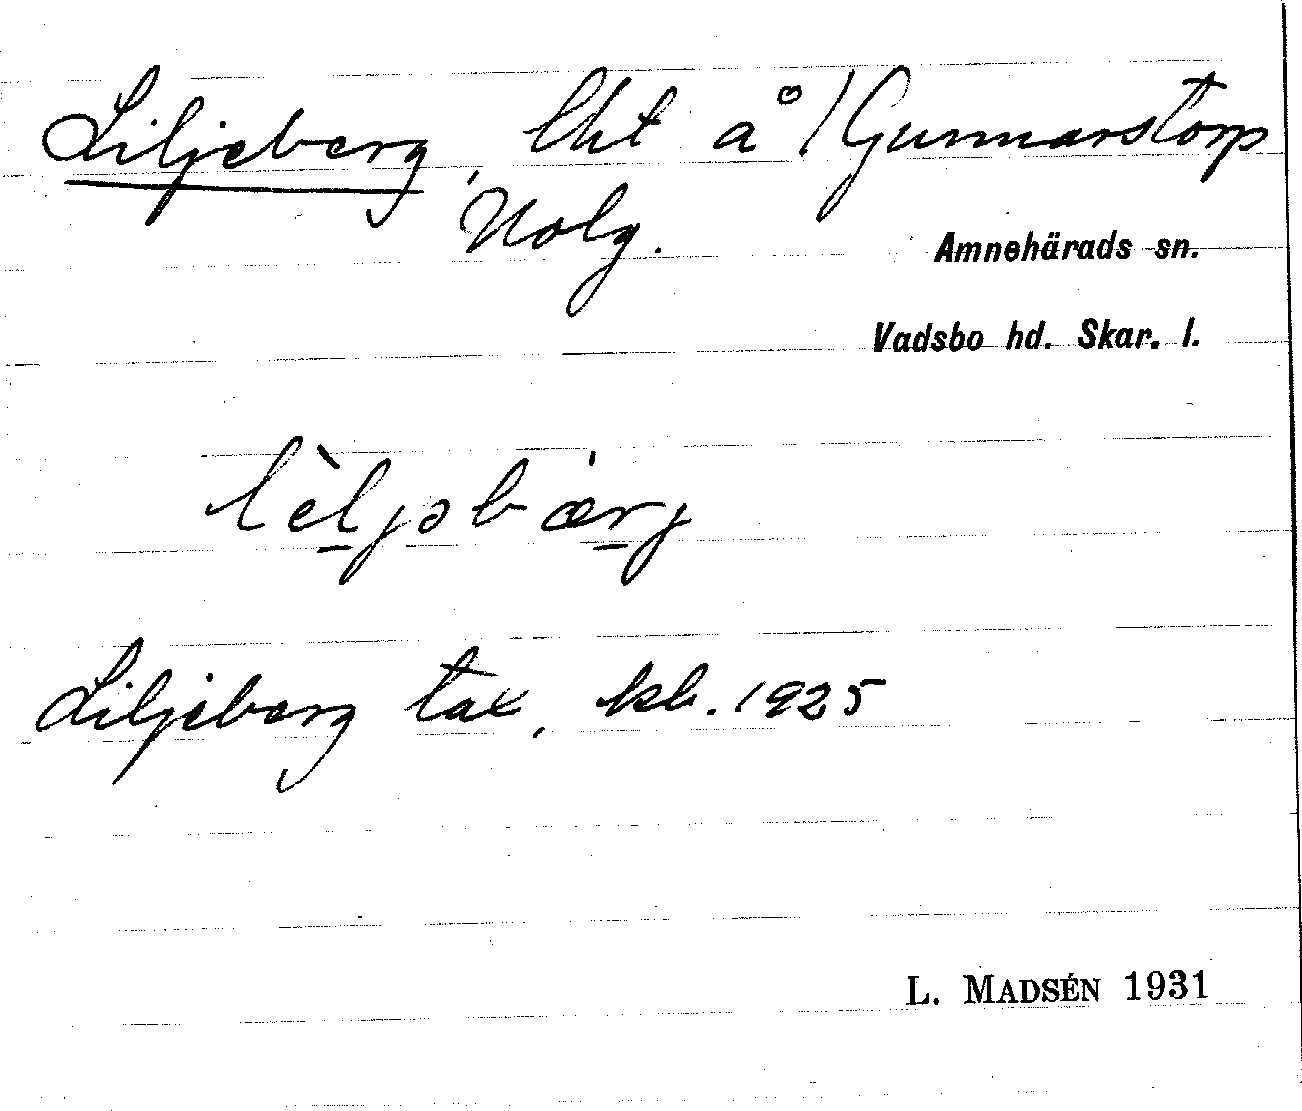 Liljeberg, lht å /Gunnarstorp
Nolg.
Amnehärads sn.
Vadsbo hd. Skar. l.
lèljəbærj
Liljeberg tax. kb. 1925
L. MADSÉN 1931